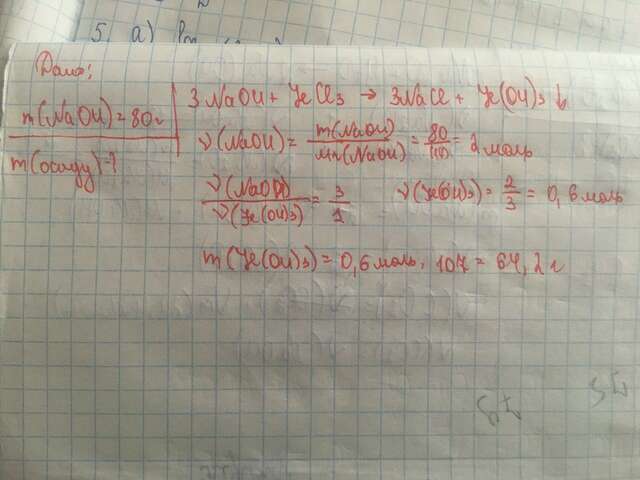 5. а)
Дано:
m(NaOH) = 80г
m(осаду) - ?
3NaOH + FeCl3 → 3NaCl + Fe(OH)3 ↓
ν(NaOH) = m(NaOH) / Mr(NaOH) = 80 / 40 = 2 моль
ν(NaOH) / ν(Fe(OH)3) = 3 / 1 ν(Fe(OH)3) = 2 / 3 = 0,6 моль
m(Fe(OH)3) = 0,6 моль · 107 = 64,2 г